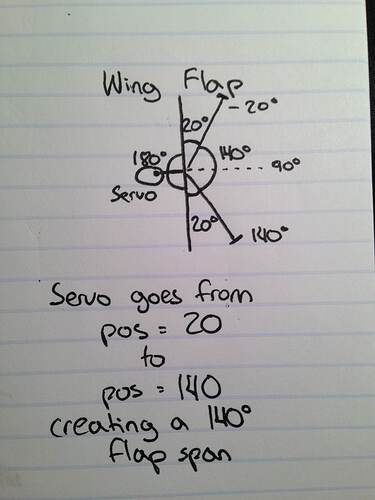 Wing Flap
- 20°
20°
180°
140°
- - - - 90°
Servo
20°
140°
Servo goes from
pos = 20
to
pos = 140
creating a 140°
flap span